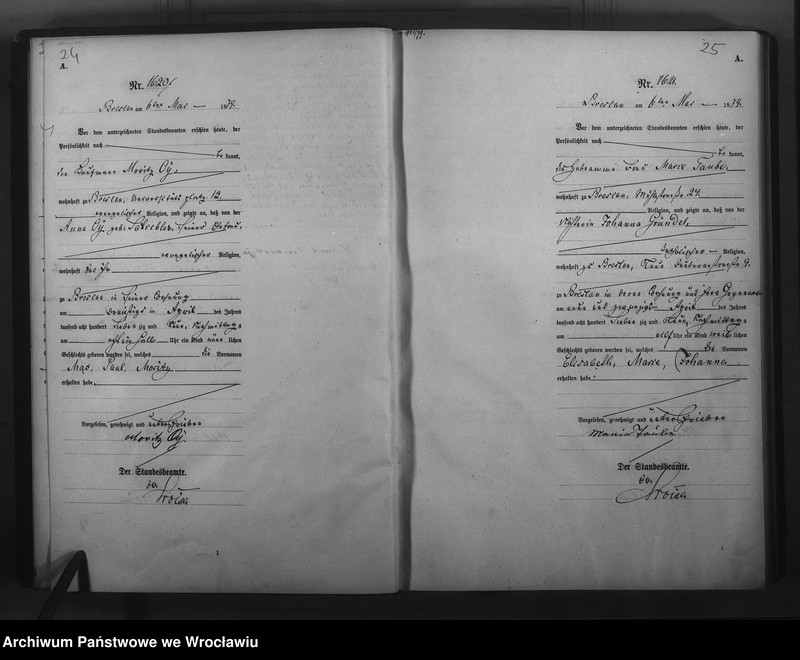 24
A.
Nr. 1620.
Breslau am 6ten Mai 1879.
Vor dem unterzeichneten Standesbeamten erschien heute, der
Persönlichkeit nach
be kannt,
der Kaufmann Moritz Oy,
wohnhaft zu Breslau, Universitäts platz 12,
evangelischer Religion, und zeigte an, daß von der
Anna Oy geb. seiner Ehefrau,
evangelischer Religion,
wohnhaft bei ihm
zu Breslau in seiner Wohnung
am dreißigsten April des Jahres
tausend acht hundert sieben zig und neun, Nachmittags
um acht ein halb Uhr ein Kind männ lichen
Geschlechts geboren worden sei, welches die Vornamen
Max, Paul, Moritz
erhalten habe.
Vorgelesen, genehmigt und unterschrieben
Moritz Oy.
Der Standesbeamte.
25
A.
Nr. 1621.
Breslau am 6ten Mai 1879.
Vor dem unterzeichneten Standesbeamten erschien heute, der
Persönlichkeit nach
be kannt,
die Hebamme Frau Marie Taube,
wohnhaft zu Breslau, 24,
Religion, und zeigte an, daß von der
Johanna Gründel,
katholischer Religion,
wohnhaft zu Breslau, Neue 9,
zu Breslau in deren Wohnung und ihrer Gegenwart
am neun und zwanzigsten April des Jahres
tausend acht hundert sieben zig und neun, Nachmittags
um elf Uhr ein Kind weib lichen
Geschlechts geboren worden sei, welches die Vornamen
Elisabeth, Marie, Johanna
erhalten habe.
Vorgelesen, genehmigt und unterschrieben
Marie Taube
Der Standesbeamte.
1
1
Archiwum Państwowe we Wrocławiu